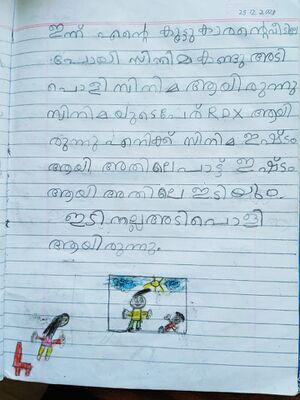 25.12.2023
ഇന്ന് എൻ്റെ കൂട്ടുകാരൻ്റെ വീട്ടിൽ
പോയി സിനിമ കണ്ടു അടി
പൊളി സിനിമ ആയിരുന്നു
സിനിമയുടെ പേര് RDX ആയി
രുന്നു എനിക്ക് സിനിമ ഇഷ്ടം
ആയി അതിലെ പാട്ട് ഇഷ്ടം
ആയി അതിലെ ഇടിയും.
ഇടി നല്ല അടിപൊളി
ആയിരുന്നു.